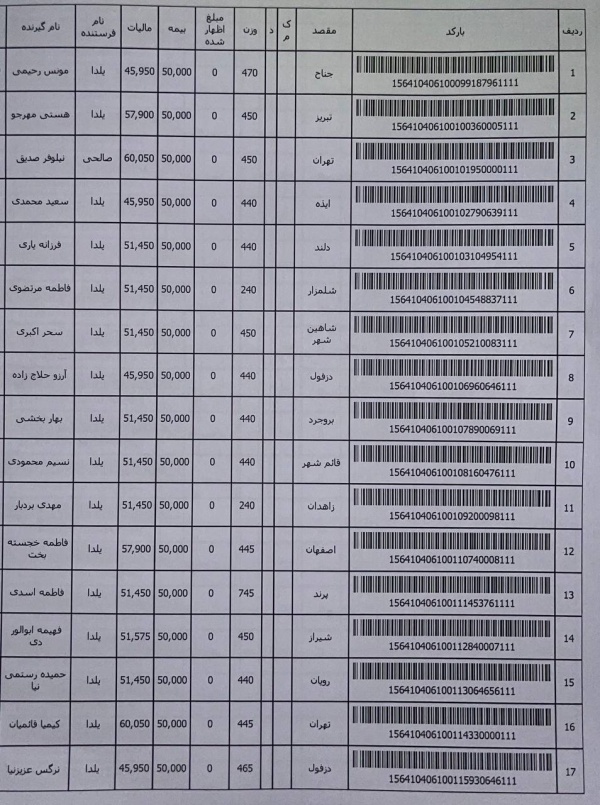 ردیف بارکد مقصد ک م د وزن مبلغ اظهار شده بیمه مالیات نام فرستنده نام گیرنده
1 156410406100099187961111 جناح 470 0 50,000 45,950 یلدا مونس رحیمی
2 156410406100100360005111 تبریز 450 0 50,000 57,900 یلدا هستی مهرجو
3 156410406100101950000111 تهران 450 0 50,000 60,050 صالحی نیلوفر صدیق
4 156410406100102790639111 ایذه 440 0 50,000 45,950 یلدا سعید محمدی
5 156410406100103104954111 دلند 440 0 50,000 51,450 یلدا فرزانه یاری
6 156410406100104548837111 شلمزار 240 0 50,000 51,450 یلدا فاطمه مرتضوی
7 156410406100105210083111 شاهین شهر 450 0 50,000 51,450 یلدا سحر اکبری
8 156410406100106960646111 دزفول 440 0 50,000 45,950 یلدا آرزو حلاج زاده
9 156410406100107890069111 بروجرد 440 0 50,000 51,450 یلدا بهار بخشی
10 156410406100108160476111 قائم شهر 440 0 50,000 51,450 یلدا نسیم محمودی
11 156410406100109200098111 زاهدان 240 0 50,000 51,450 یلدا مهدی بردبار
12 156410406100110740008111 اصفهان 445 0 50,000 57,900 یلدا فاطمه خجسته بخت
13 156410406100111453761111 پرند 745 0 50,000 51,450 یلدا فاطمه اسدی
14 156410406100112840007111 شیراز 450 0 50,000 51,575 یلدا فهیمه ابوالور دی
15 156410406100113064656111 رویان 440 0 50,000 51,450 یلدا حمیده رستمی نیا
16 156410406100114330000111 تهران 445 0 50,000 60,050 یلدا کیمیا قائمیان
17 156410406100115930646111 دزفول 465 0 50,000 45,950 یلدا نرگس عزیزنیا